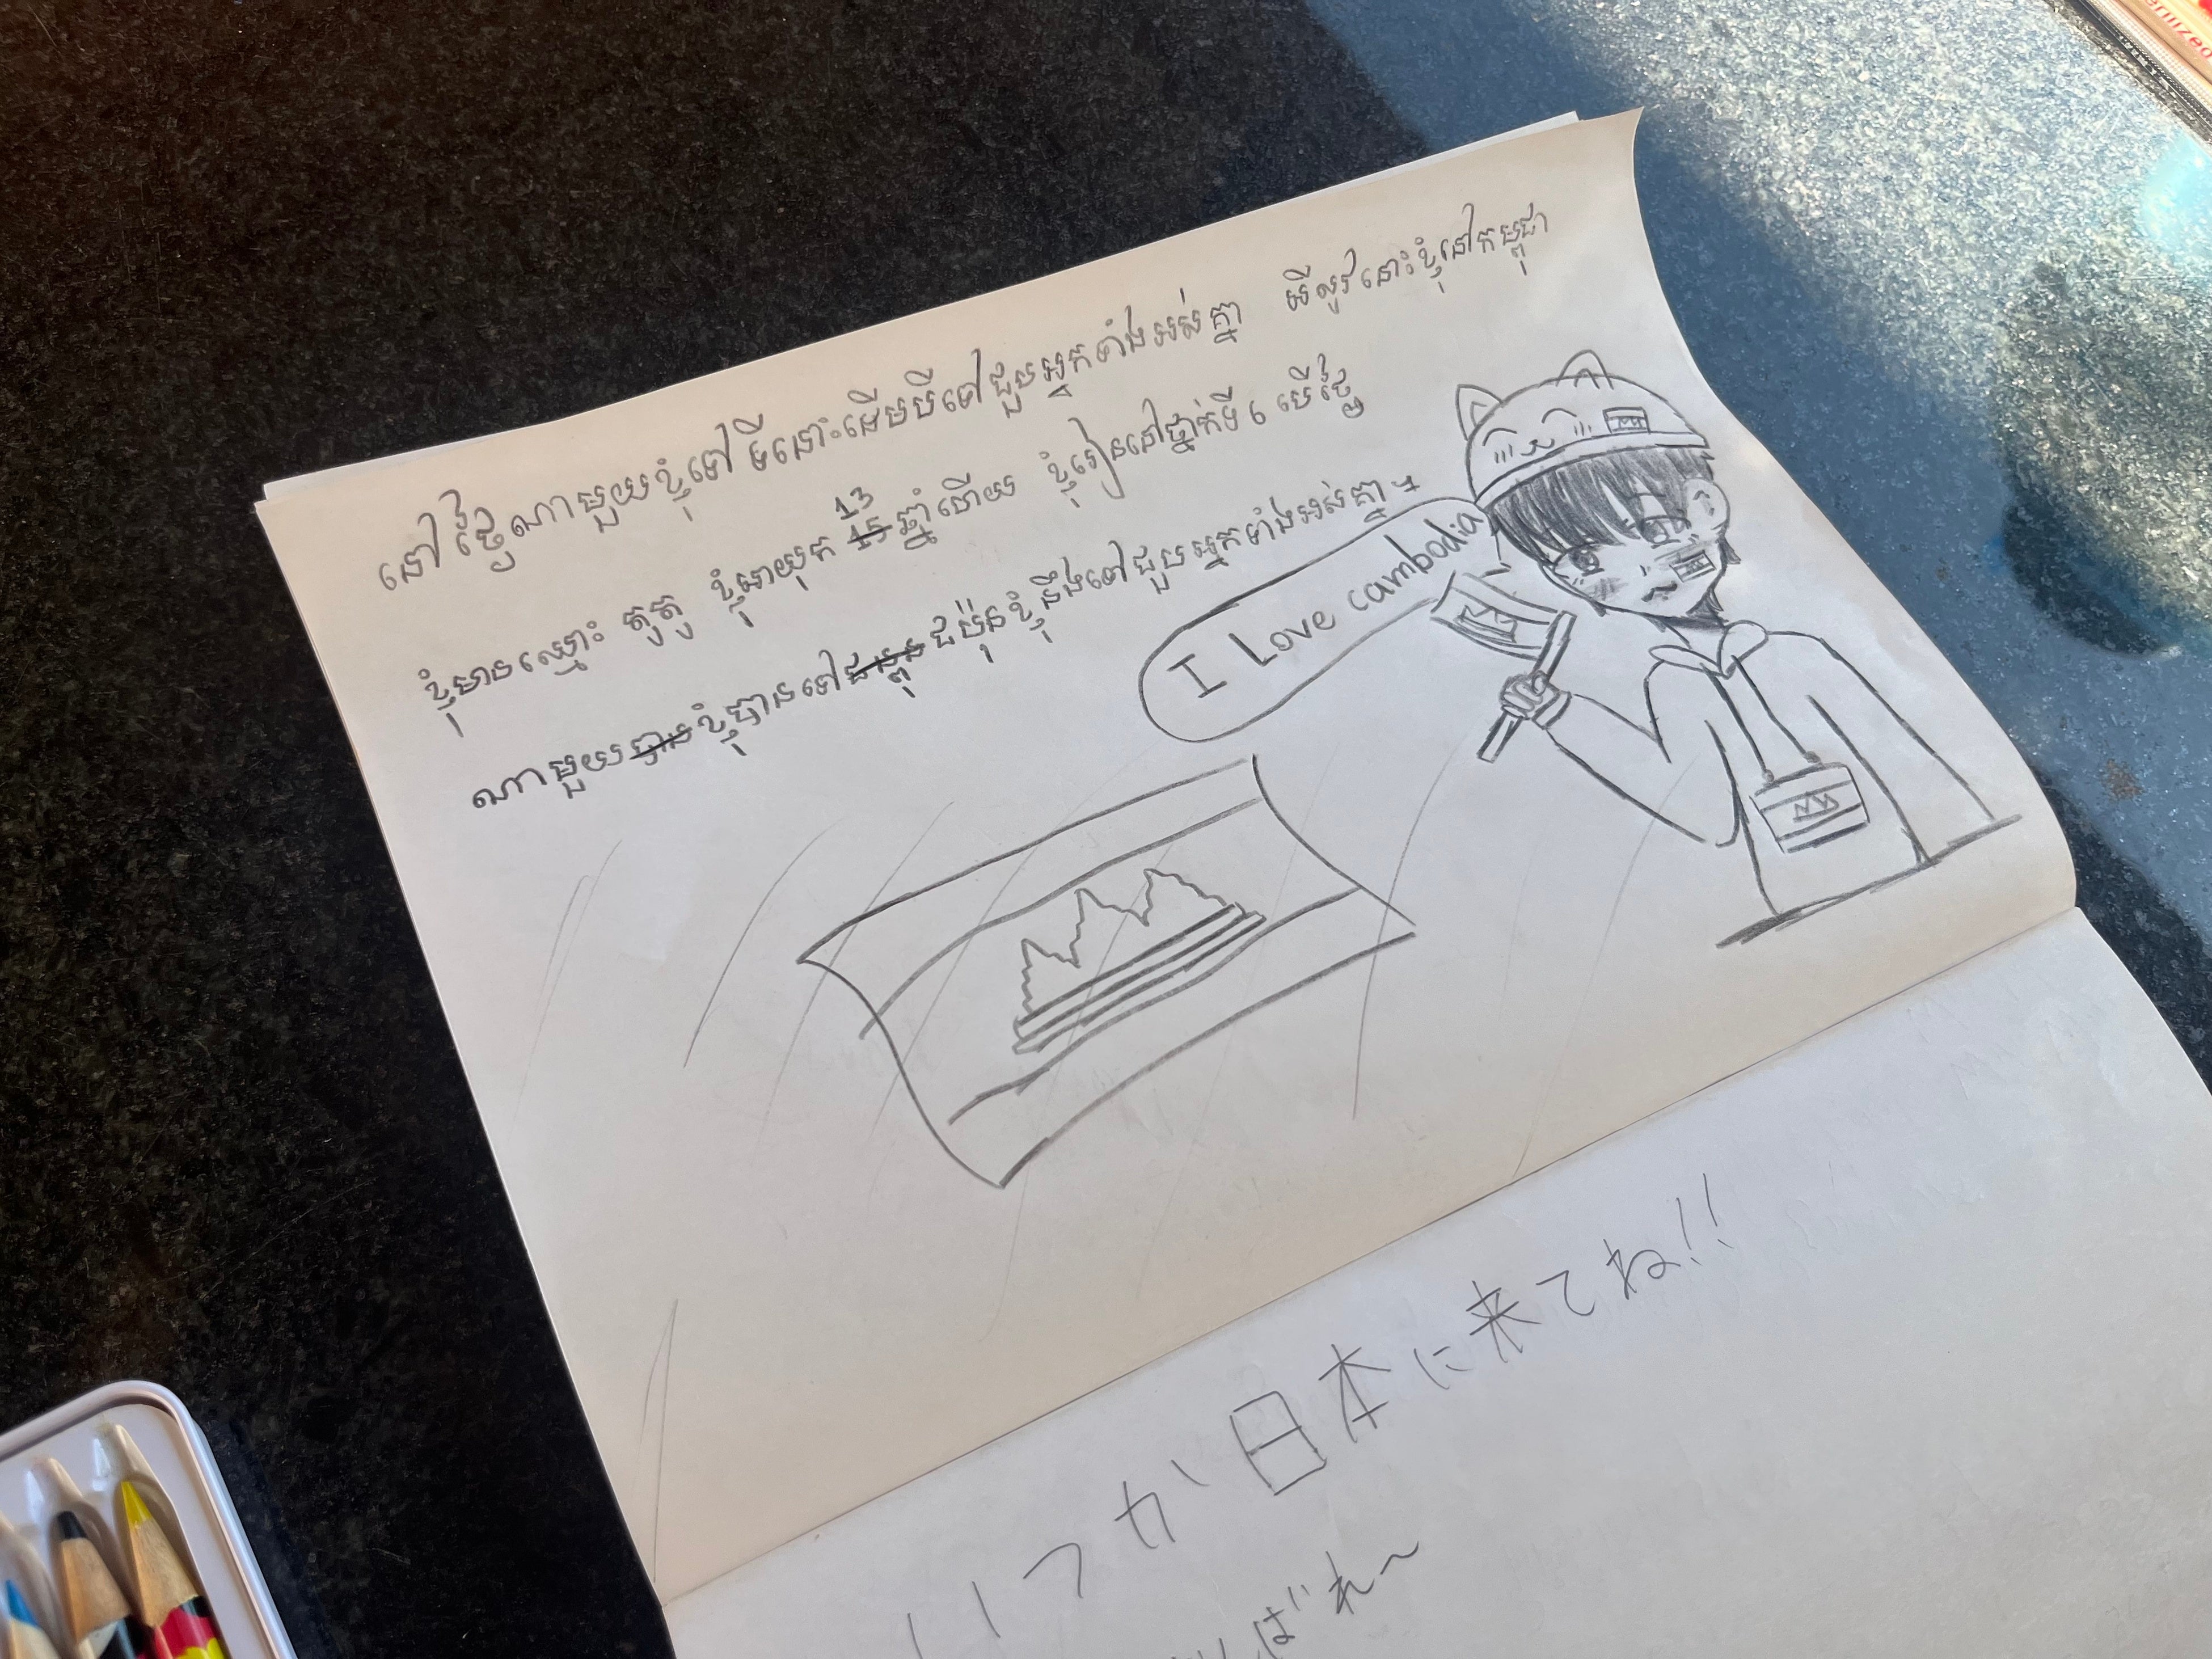 នៅថ្ងៃណាមួយខ្ញុំទៅទីនោះដើមបីទៅជួបអ្នកទាំងអស់គ្នា អីសូវនោះខ្ញុំនៅកម្ពុជា
ខ្ញុំមានឈ្មោះ តូតូ ខ្ញុំអាយុក 13 ឆ្នាំហើយ ខ្ញុំរៀននៅថ្នាក់ទី ៦ បើថ្ងៃ
ណាមួយខ្ញុំបានទៅជប៉ុនខ្ញុំនឹងទៅជួបអ្នកទាំងអស់គ្នា។
I Love cambodia
いつか日本に来てね!!
ばれ〜